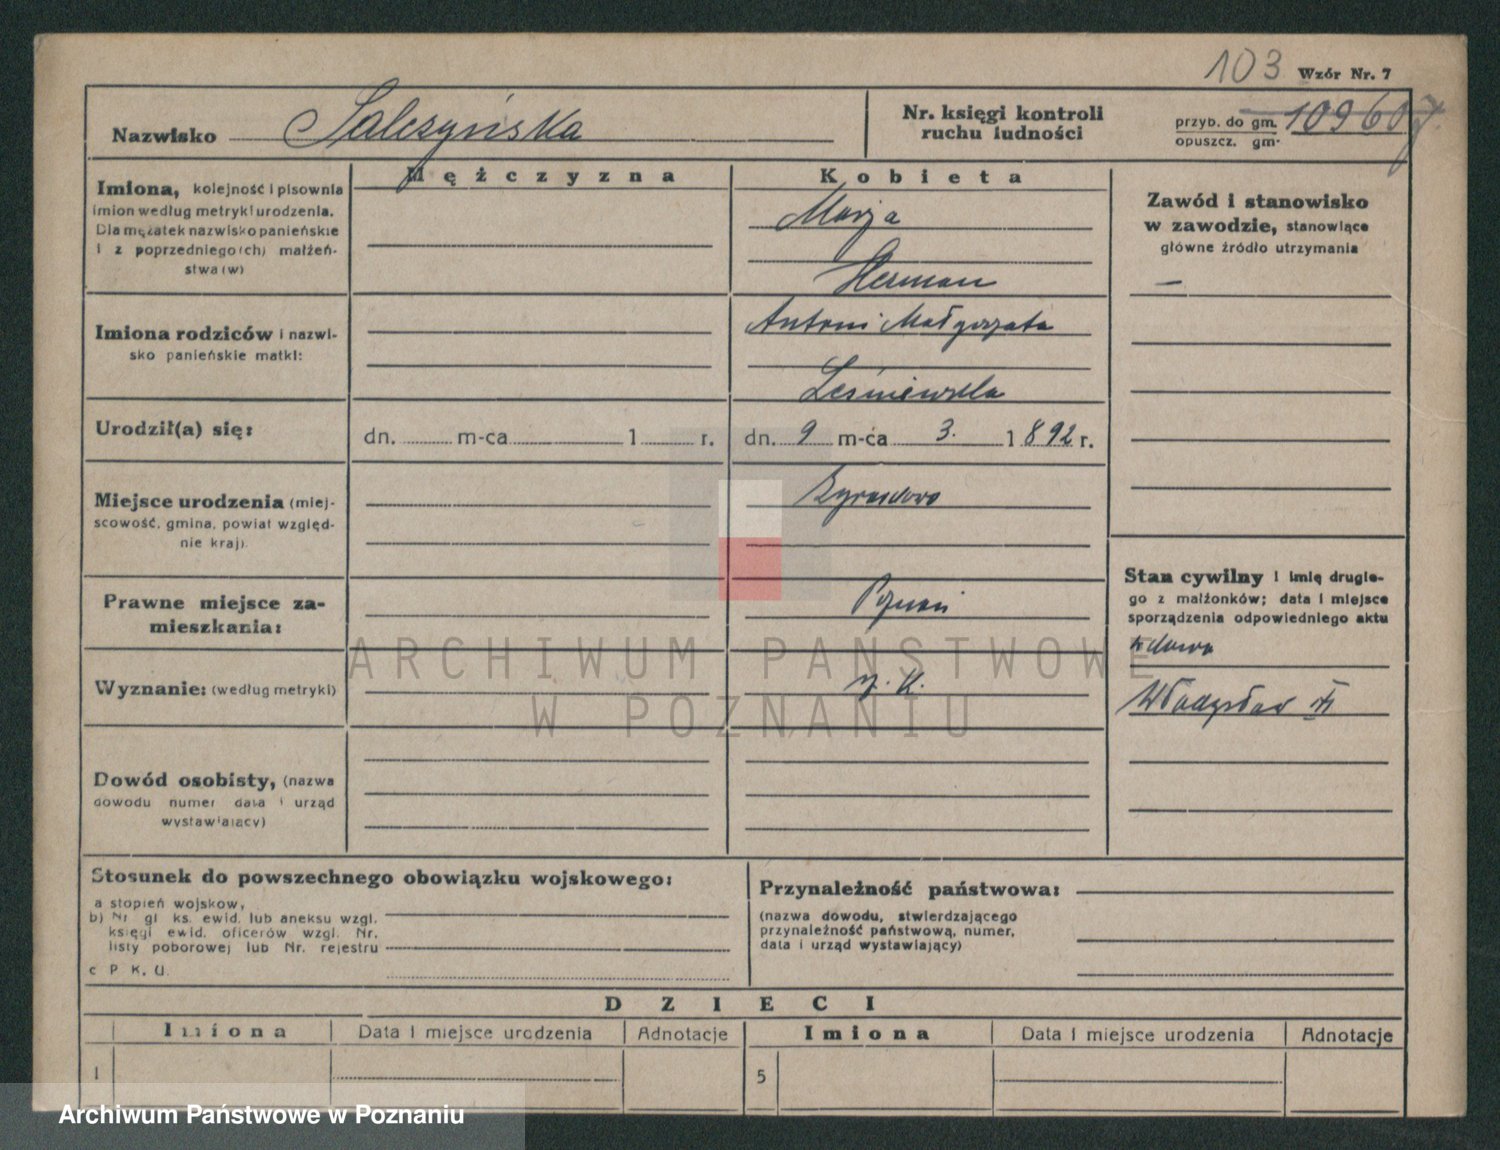 103 Wzór Nr. 7
Nazwisko Salczyńska
Nr. księgi kontroli
ruchu ludności
przyb. do gm. 10960
opuszcz. gm.
Mężczyzna
Kobieta
Imiona, kolejność i pisownia
imion według metryki urodzenia.
Dla mężatek nazwisko panieńskie
i z poprzedniego(ch) małżeń-
stwa(w)
Marja
Herman
Zawód i stanowisko
w zawodzie, stanowiące
główne źródło utrzymania
—
Imiona rodziców i nazwi-
sko panieńskie matki:
Antoni Małgorzata
Leśniewska
Urodził(a) się:
dn. m-ca 1 r.
dn. 9 m-ca 3. 1892 r.
Miejsce urodzenia (miej-
scowość, gmina, powiat względ-
nie kraj).
Prawne miejsce za-
mieszkania:
Poznań
Stan cywilny i imię drugie-
go z małżonków; data i miejsce
sporządzenia odpowiedniego aktu
wdowa
Władysław
Wyznanie: (według metryki)
r. k.
Dowód osobisty, (nazwa
dowodu numer data i urząd
wystawiający)
Stosunek do powszechnego obowiązku wojskowego:
a stopień wojskow,
b) Nr gł ks. ewid. lub aneksu wzgl.
księgi ewid. oficerów wzgl. Nr.
listy poborowej lub Nr. rejestru
c P. K. U.
Przynależność państwowa:
(nazwa dowodu, stwierdzającego
przynależność państwową, numer,
data i urząd wystawiający)
DZIECI
Imiona Data i miejsce urodzenia Adnotacje Imiona Data i miejsce urodzenia Adnotacje
1 5
ARCHIWUM PAŃSTWOWE
W POZNANIU
Archiwum Państwowe w Poznaniu